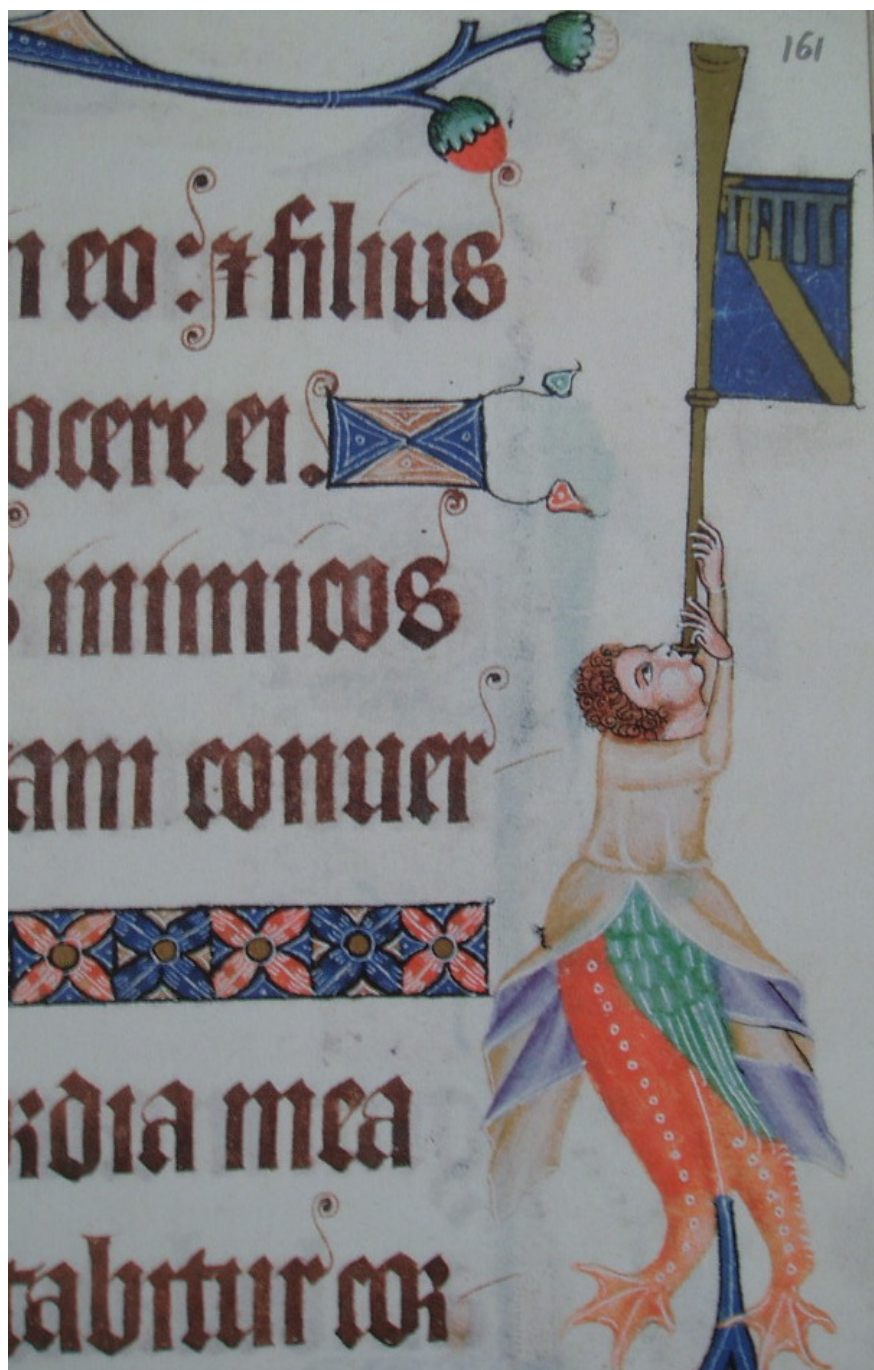 161
n eo : ⁊ filius
ocere ei.
s inimicos
am conuer
rdia mea
tabitur cor